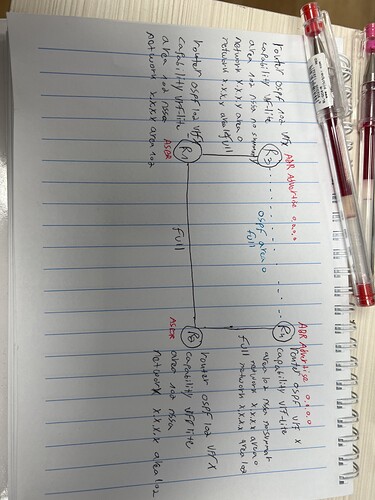 router ospf 102 vrf x
capability vrf-lite
area 102 nssa no summary
network x.x.x.x area 0
network x.x.x.x area
full
R3
ABR Advertise 0.0.0.0
router ospf 102 vrf x
capability vrf-lite
area 102 nssa
network x.x.x.x area 102
ASBR
R1
ospf area 0
full
full
ABR Advertise 0.0.0.0
R4
router ospf vrf x
capability vrf-lite
area 102 nssa no summary
network x.x.x.x area 0
network x.x.x.x area 102
full
ASBR
router ospf 102 vrf x
capability vrf lite
area 102 nssa
network x.x.x.x area 102